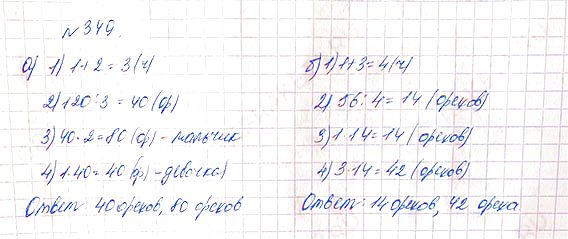 № 349.
а) 1) 1+2 = 3 (ч)
2) 120 : 3 = 40 (ор)
3) 40 · 2 = 80 (ор) - мальчик
4) 1 · 40 = 40 (ор) - девочка)
Ответ: 40 орехов, 80 орехов
б) 1) 1+3 = 4 (ч)
2) 56 : 4 = 14 (орехов)
3) 1 · 14 = 14 (орехов)
4) 3 · 14 = 42 (орехов)
Ответ: 14 орехов, 42 ореха